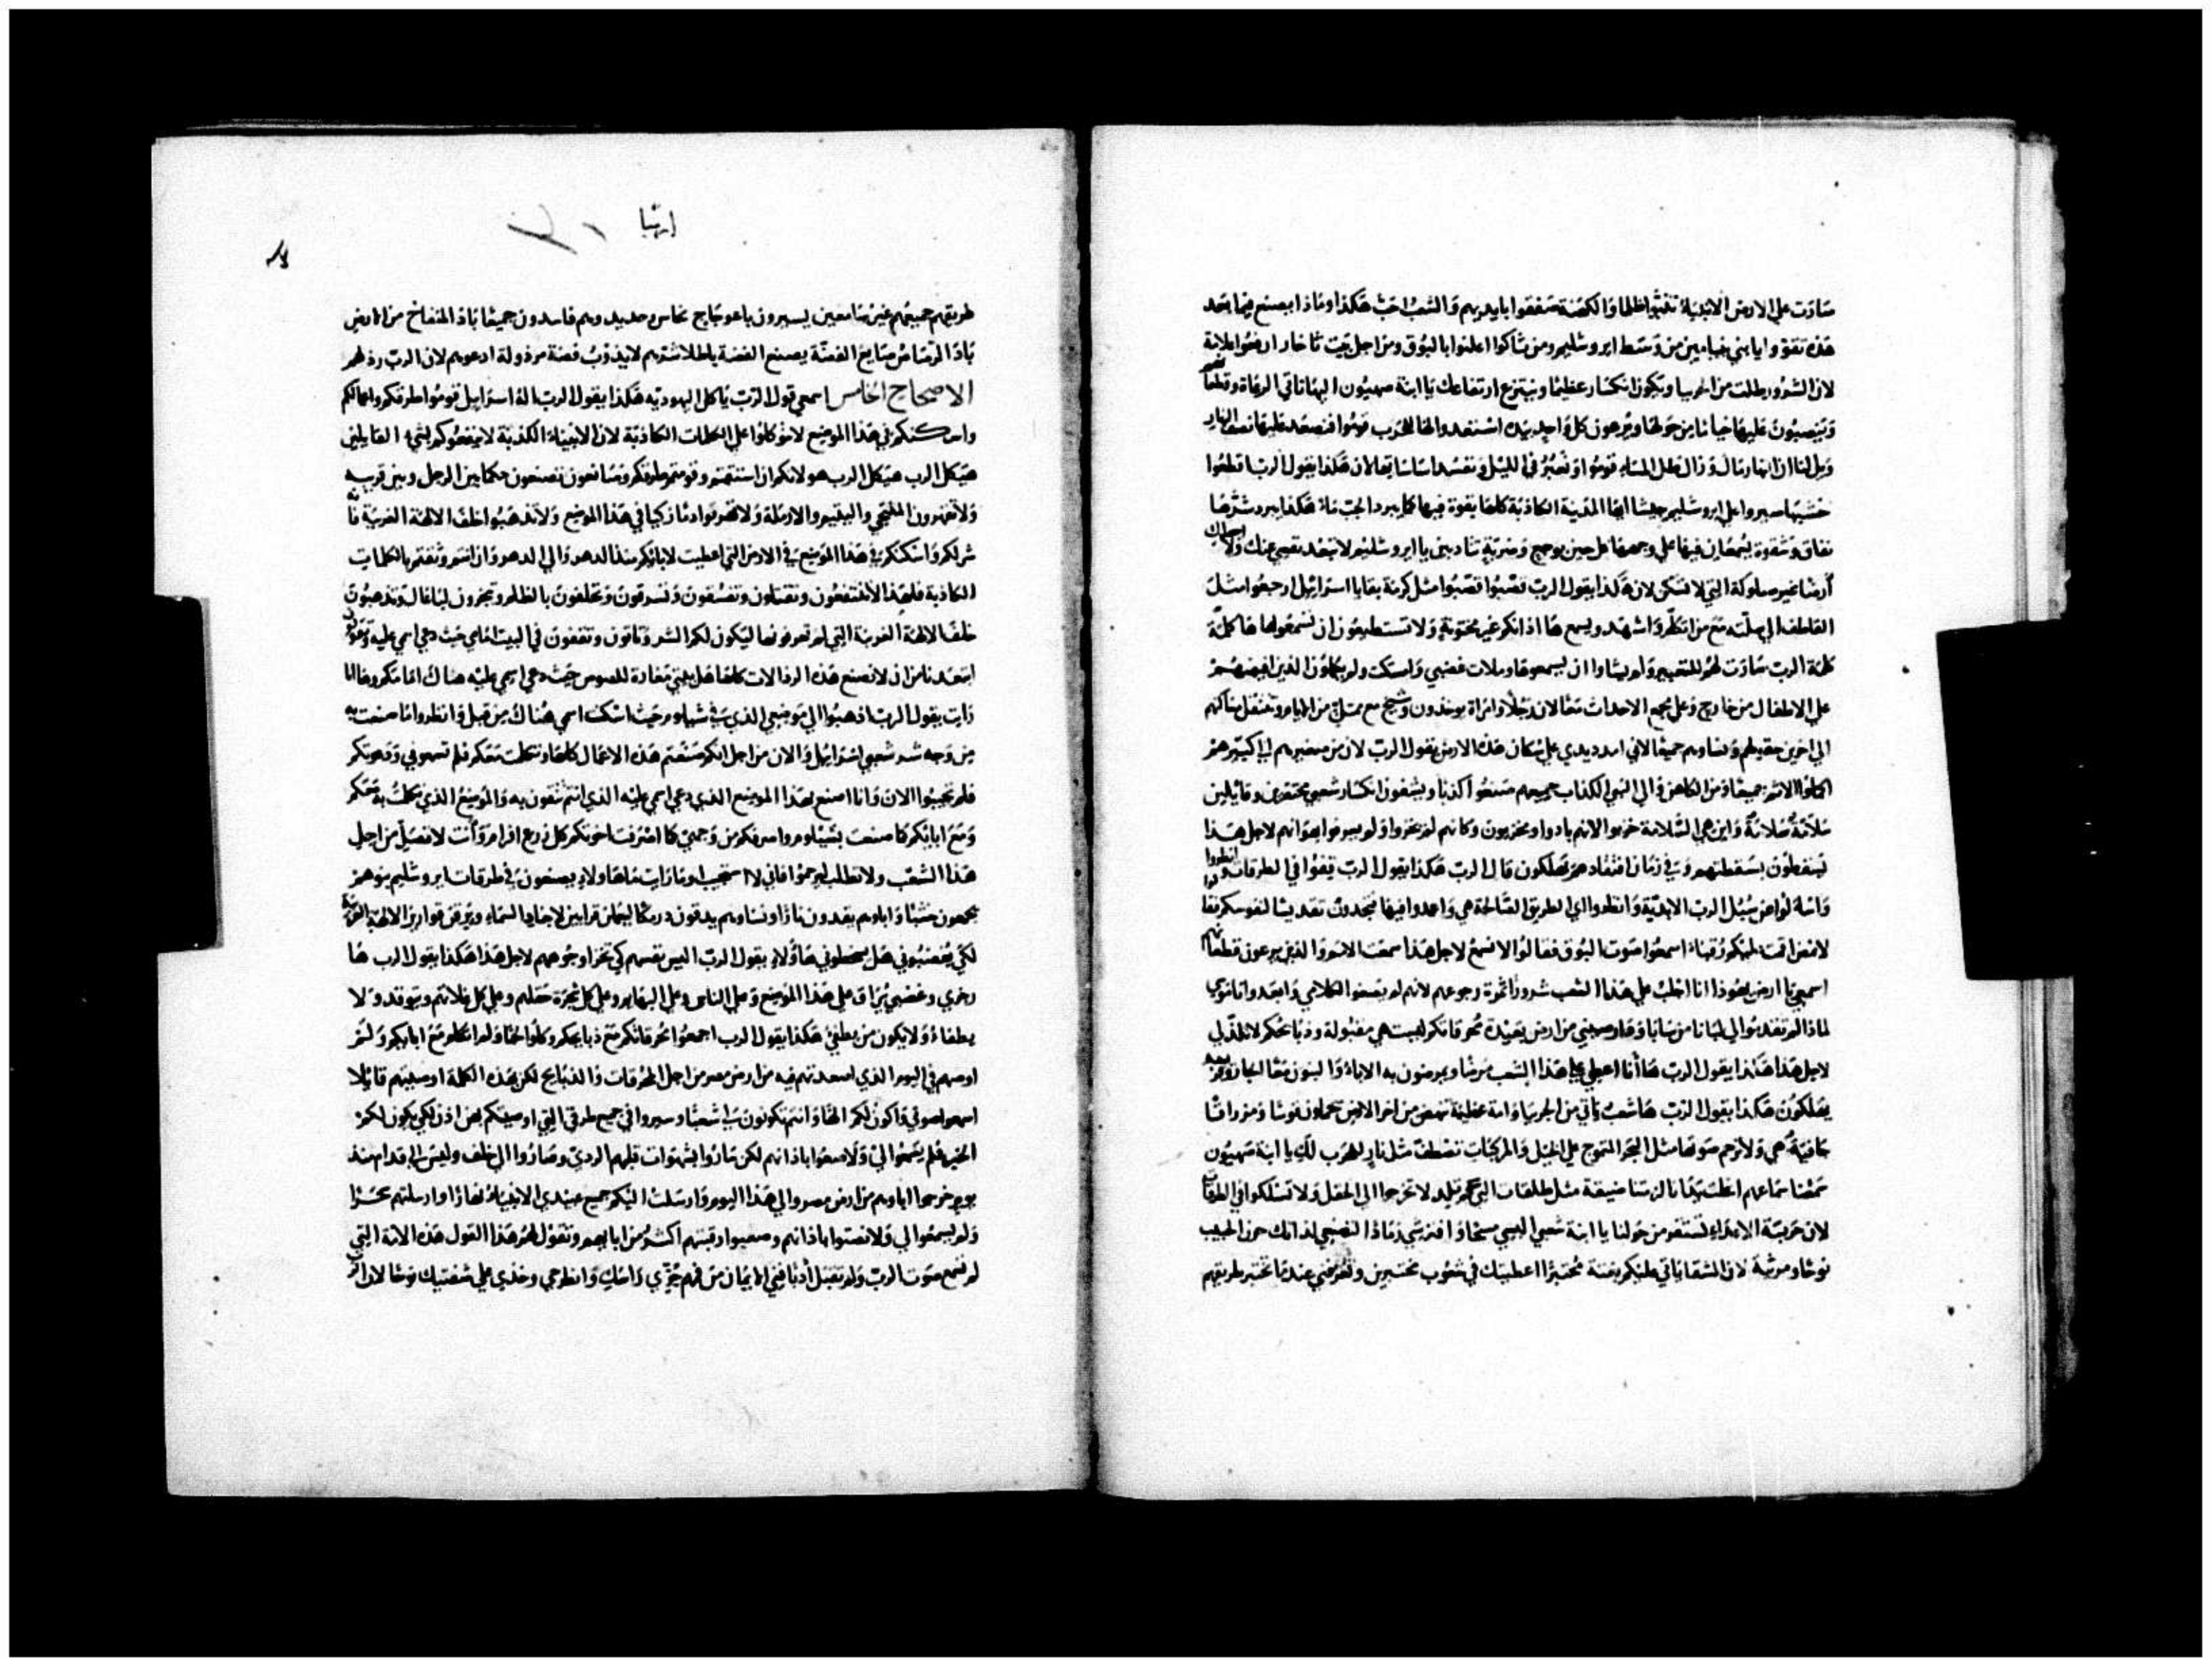 صارت علي الارض الانبياء تنبوا ظلما والكهنة صفقوا بايديهم والشعب احب هكذا وماذا يصنع فيما بعد
هذه تقووا يا بني بنيامين من وسط ايروشليم ومن ثاكوا اعلنوا بالبوق ومن اجل بيت ثاخار ارفعوا علامة
لان الشرور اطلت من الجربيا ويكون انكسار عظيما وينتزع ارتفاعك يا ابنة صهيون اليها تاتي الرعاة وقطعانهم
وينصبون عليها خياما من حولها ويرعون كل واحد بيده استعدوا لها للحرب قوموا فنصعد عليها نصف النهار
ويل لنا ان النهار مال وزال ظل المساء قوموا ونعبر في الليل ونفسد اساساتها لان هكذا يقول الرب اقطعوا
خشبها سيروا علي ايروشليم جيشا ايها المدينة الكاذبة كلها بقوة فيها كما يبرد الجب ماء هكذا يبرد شرها
نفاق وشقوة يسمعان فيها علي وجهها كل حين بوجع وضربة تتادبين يا ايروشليم لا تبعد نفسي عنك ولا اجعلك
أرضا غير مسلوكة التي لا تسكن لان هكذا يقول الرب قصبوا قصبوا مثل كرمة بقايا اسرائيل ارجعوا مثل
القاطف الي سلته مع من اتكلم واشهد ويسمع ها اذانكم غير مختونة ولا تستطيعون ان تسمعوا ها كلمة
كلمة الرب صارت لهم للتعيير ولم يشاوا ان يسمعوها وملات غضبي وامسكت ولم
علي الاطفال من خارج وعلي جمع الاحداث معا لان رجلا وامراة يوخذون وشيخ مع ممتلئ من الايام وتنتقل منازلهم
الي اخرين حقولهم ونساوهم جميعا لاني امد يدي علي سكان هذه الارض يقول الرب لان من صغيرهم الي كبيرهم
اكملوا الاثم جميعا ومن الكاهن والي النبي الكذاب جميعهم صنعوا كذبا ويشفون انكسار شعبي محتقرين وقائلين
سلامة سلامة واين هي السلامة خزيوا لانهم بادوا ومخزيون وكانهم لم يخزوا ولم يعرفوا هوانهم لاجل هذا
يسقطون بسقطتهم وفي زمان افتقادهم يهلكون قال الرب هكذا يقول الرب قفوا في الطرقات وانظروا
واسالوا عن سبل الرب الابدية وانظروا اي الطريق الصالحة هي وامشوا فيها فتجدون تقديسا لنفوسكم فقالوا
لا نمضي اقمت عليكم رقباء اسمعوا صوت البوق فقالوا لا نسمع لاجل هذا سمعت الامم والذين يرعون قطعانهم
اسمعي يا ارض هوذا انا اجلب علي هذا الشعب شرورا ثمرة رجوعهم لانهم لم يصغوا لكلامي وابعدوا ناموسي
لماذا لم تقدموا لي لبانا من سابا وقارصيني من ارض بعيدة محرقاتكم ليست هي مقبولة وذبائحكم لا تلذ لي
لاجل هذا هكذا يقول الرب ها أنا اعطي علي هذا الشعب مرضا ويمرضون به الاباء والبنون معا الجار وقريبه
يهلكون هكذا يقول الرب ها شعب ياتي من الجربيا وامة عظيمة تنهض من اخر الارض يحملون قوسا ومزراقا
جافية هي ولا ترحم صوتها مثل البحر المتموج علي الخيل والمركبات تصطف مثل نار للحرب لك يا ابنة صهيون
سمعنا سماعهم انحلت يدانا الزمتنا ضيقة مثل طلقات التي تلد لا تخرجوا الي الحقل ولا تسلكوا في الطرقات
لان حربة الاعداء تستقر من حولنا يا ابنة شعبي البسي مسحا وافترشي رمادا اصنعي لذاتك حزن الحبيب
نوحا ومرثية لان الشقا ياتي عليكم بغتة مختبرا اعطيتك في شعوب مختبرين وتعرفني عندما تختبر طريقهم
ارميا
طريقهم جميعهم غير سامعين يسيرون باعوجاج نحاس وحديد وهم فاسدون جميعا باد المنفاخ من النار
باد الرصاص صايغ الفضة يصنع الفضة باطلا شرهم لا يذوب فضة مرذولة ادعوهم لان الرب رذلهم
الاصحاح الخامس اسمعي قول الرب يا كل اليهودية هكذا يقول الرب اله اسرائيل قوموا طرقكم واعمالكم
واسكنكم في هذا الموضع لا تتوكلوا علي الكلمات الكاذبة لان الانبياء الكذبة لا ينفعوكم بشيء القايلين
هيكل الرب هيكل الرب هو لانكم ان استقمتم وقومتم طرقكم وصانعون تصنعون حكما بين الرجل وبين قريبه
ولا تقهرون الملتجي واليتيم والارملة ولا تهرقوا دما زكيا في هذا الموضع ولا تذهبوا خلف الالهة الغريبة فانه
شر لكم واسكنكم في هذا الموضع في الارض التي اعطيت لابائكم منذ الدهر والي الدهر وان انتم وثقتم بالكلمات
الكاذبة فلهذا لا تنتفعون وتقتلون وتفسقون وتسرقون وتحلفون بالظلم وتبخرون لباغال وتذهبون
خلف الالهة الغريبة التي لم تعرفونها ليكون لكم الشر وتاتون وتقفون في البيت امامي حيث دعي اسمي عليه وتقولون
ابتعدنا من ان لا نصنع هذه الرذالات كلها هل بيتي مغارة للصوص حيث دعي اسمي عليه هناك امامكم وها انا
رايت يقول الرب اذهبوا الي موضعي الذي في شيلوم حيث اسكنت اسمي هناك من قبل وانظروا ما صنعت به
من وجه شر شعبي اسرائيل والان من اجل انكم صنعتم هذه الاعمال كلها وتكلمت معكم فلم تسمعوني ودعوتكم
فلم تجيبوا الان وانا اصنع بهذا الموضع الذي دعي اسمي عليه الذي انتم تثقون به والموضع الذي اعطيت لكم
ومع ابائكم كما صنعت بشيلوم واصرفكم من وجهي كما صرفت اخوتكم كل زرع افرام وأنت لا تصل من اجل
هذا الشعب ولا تطلب ليرحموا فاني لا استجيب اوما رايت ماها ولاء يصنعون في طرقات ايروشليم بنوهم
يجمعون خشبا واباوهم يقدون نارا ونساوهم يدقون دميكا ليعملن قرابين لاجناد السماء ويهرقن قوارير الالهة الغريبة
لكي يغضبوني هل يسخطوني هاولاء يقول الرب اليس نفسهم كي تخزا وجوههم لاجل هذا هكذا يقول الرب ها
رجزي وغضبي يراق علي هذا الموضع وعلي الناس وعلي البهايم وعلي كل شجرة حقلهم وعلي كل غلاتهم ويتوقد ولا
يطفاء ولا يكون من يطفئ هكذا يقول الرب اجمعوا محرقاتكم مع ذبايحكم وكلوا لحما ولم اتكلم مع ابايكم ولم
اوصهم في اليوم الذي اصعدتهم فيه من ارض مصر من اجل المحرقات والذبايح لكن هذه الكلمة اوصيتهم قائلا
اسمعوا صوتي واكون لكم الها وانتم تكونون لي شعبا وسيروا في جميع طرقي التي اوصيتكم بهن اذن لكي يكون لكم
الخير فلم يسمعوا لي ولا صغوا باذانهم لكن ساروا بشهوات قلبهم الردي وصاروا الي خلف وليس الي قدام منذ
يوم خرجوا اباوهم من ارض مصر والي هذا اليوم وارسلت اليكم جميع عبيدي الانبياء نهارا وارسلتهم سحرا
ولم يسمعوا لي ولا نصتوا باذانهم وصعبوا رقبتهم اكثر من ابايهم وتقول لهم هذا القول هذه الامة التي
لم تسمع صوت الرب ولم تقبل أدبا فني الايمان من فمهم جزي راسك واطرحي وخذي علي شفتيك نوحا لان الرب